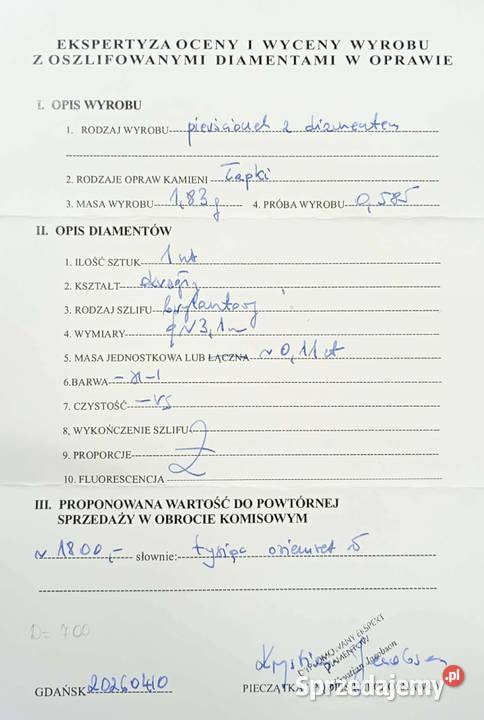 EKSPERTYZA OCENY I WYCENY WYROBU
Z OSZLIFOWANYMI DIAMENTAMI W OPRAWIE
I. OPIS WYROBU
1. RODZAJ WYROBU pierścionek z diamentem
2. RODZAJE OPRAW KAMIENI Łapki
3. MASA WYROBU 1,83 g 4. PRÓBA WYROBU 0,585
II. OPIS DIAMENTÓW
1. ILOŚĆ SZTUK 1 szt
2. KSZTAŁT okrągły
3. RODZAJ SZLIFU brylantowy
4. WYMIARY φ ~ 3,1 m
5. MASA JEDNOSTKOWA LUB ŁĄCZNA ~ 0,11 ct
6. BARWA - H-I
7. CZYSTOŚĆ - VS
8, WYKOŃCZENIE SZLIFU
9. PROPORCJE
10. FLUORESCENCJA
III. PROPONOWANA WARTOŚĆ DO POWTÓRNEJ
SPRZEDAŻY W OBROCIE KOMISOWYM
~ 1800,- słownie: tysiąc osiemset zł
D= 700
DYPLOMOWANY EKSPERT
DIAMENTÓW
Jacobson
GDAŃSK 20260410 PIECZĄTKA
Sprzedajemy.pl